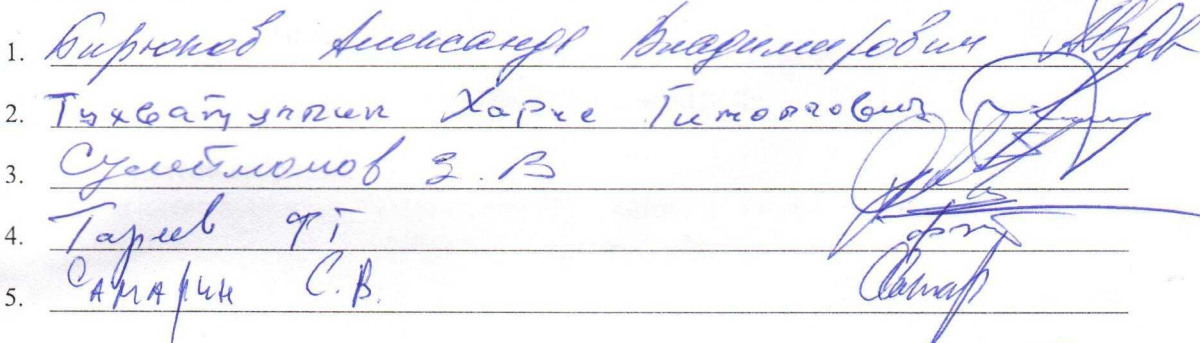 1. Бирюков Александр Владимирович
2. Тухватуллин Харис
3. Сулейманов З. В
4. Гареев ФГ
5. Самарин С.В.